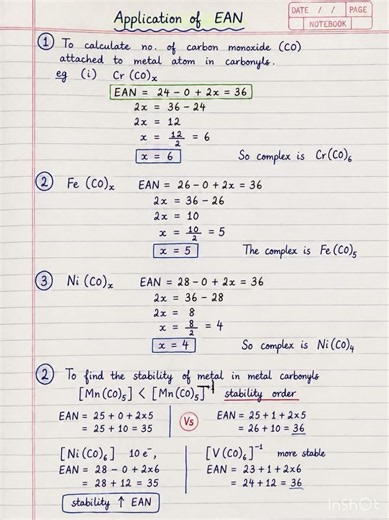 Application of EAN
DATE / / PAGE
NOTEBOOK
① To calculate no. of carbon monoxide (CO)
attached to metal atom in carbonyls.
eg (i) Cr(CO)ₓ
EAN = 24 - 0 + 2x = 36
2x = 36 - 24
2x = 12
x = 12/2 = 6
x = 6 So complex is Cr(CO)₆
② Fe (CO)ₓ EAN = 26 - 0 + 2x = 36
2x = 36 - 26
2x = 10
x = 10/2 = 5
x = 5 The complex is Fe(CO)₅
③ Ni (CO)ₓ EAN = 28 - 0 + 2x = 36
2x = 36 - 28
2x = 8
x = 8/2 = 4
x = 4 So complex is Ni(CO)₄
② To find the stability of metal in metal carbonyls
[Mn(CO)₅] < [Mn(CO)₅]⁻¹ stability order
EAN = 25 + 0 + 2x5 Vs EAN = 25 + 1 + 2x5
= 25 + 10 = 35 = 26 + 10 = 36
[Ni(CO)₆] 10 e⁻, [V(CO)₆]⁻¹ more stable
EAN = 28 - 0 + 2x6 EAN = 23 + 1 + 2x6
= 28 + 12 = 35 = 24 + 12 = 36
stability ↑ EAN
InShOt